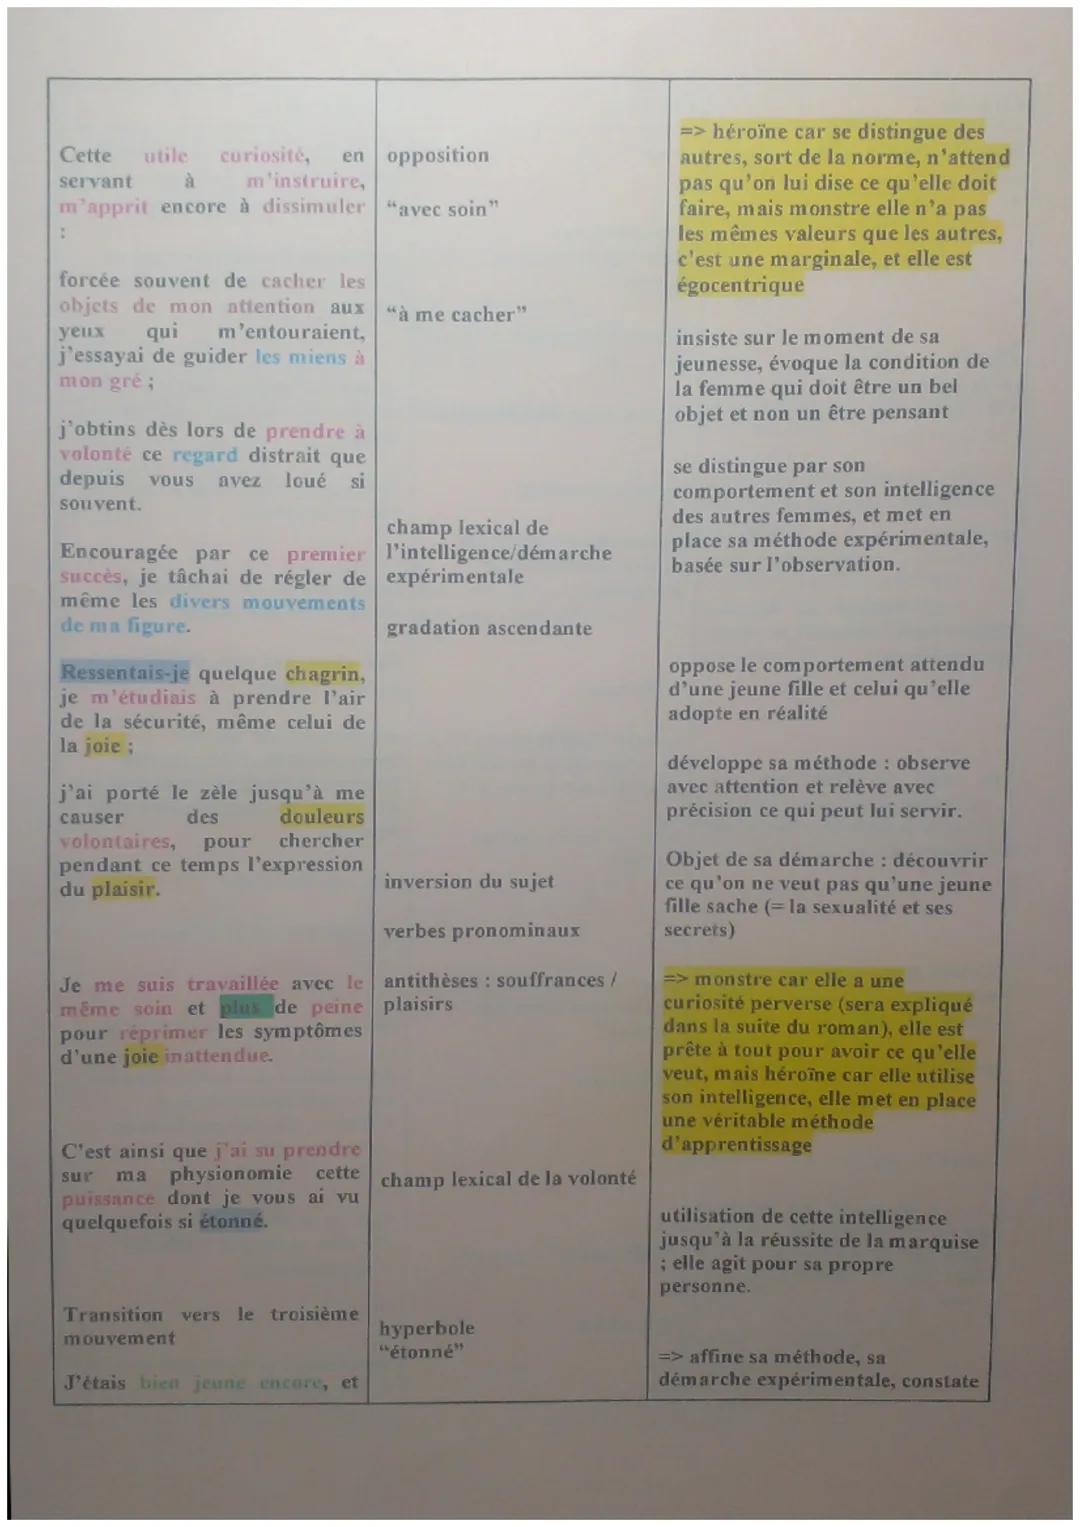 Cette utile curiosité, en
servant à m'instruire,
m'apprit encore à dissimuler
:
forcée souvent de cacher les
objets de mon attention aux
yeux qui m'entouraient,
j'essayai de guider les miens à
mon gré ;
j'obtins dès lors de prendre à
volonté ce regard distrait que
depuis vous avez loué si
souvent.
Encouragée par ce premier
succès, je tâchai de régler de
même les divers mouvements
de ma figure.
Ressentais-je quelque chagrin,
je m'étudiais à prendre l'air
de la sécurité, même celui de
la joie ;
j'ai porté le zèle jusqu'à me
causer des douleurs
volontaires, pour chercher
pendant ce temps l'expression
du plaisir.
Je me suis travaillée avec le
même soin et plus de peine
pour réprimer les symptômes
d'une joie inattendue.
C'est ainsi que j'ai su prendre
sur ma physionomie cette
puissance dont je vous ai vu
quelquefois si étonné.
Transition vers le troisième
mouvement
J'étais bien jeune encore, et
opposition
"avec soin"
"à me cacher"
champ lexical de
l'intelligence/démarche
expérimentale
gradation ascendante
inversion du sujet
verbes pronominaux
antithèses : souffrances /
plaisirs
champ lexical de la volonté
hyperbole
"étonné"
=> héroïne car se distingue des
autres, sort de la norme, n'attend
pas qu'on lui dise ce qu'elle doit
faire, mais monstre elle n'a pas
les mêmes valeurs que les autres,
c'est une marginale, et elle est
égocentrique
insiste sur le moment de sa
jeunesse, évoque la condition de
la femme qui doit être un bel
objet et non un être pensant
se distingue par son
comportement et son intelligence
des autres femmes, et met en
place sa méthode expérimentale,
basée sur l'observation.
oppose le comportement attendu
d'une jeune fille et celui qu'elle
adopte en réalité
développe sa méthode : observe
avec attention et relève avec
précision ce qui peut lui servir.
Objet de sa démarche : découvrir
ce qu'on ne veut pas qu'une jeune
fille sache (= la sexualité et ses
secrets)
=> monstre car elle a une
curiosité perverse (sera expliqué
dans la suite du roman), elle est
prête à tout pour avoir ce qu'elle
veut, mais héroïne car elle utilise
son intelligence, elle met en place
une véritable méthode
d'apprentissage
utilisation de cette intelligence
jusqu'à la réussite de la marquise
; elle agit pour sa propre
personne.
=> affine sa méthode, sa
démarche expérimentale, constate